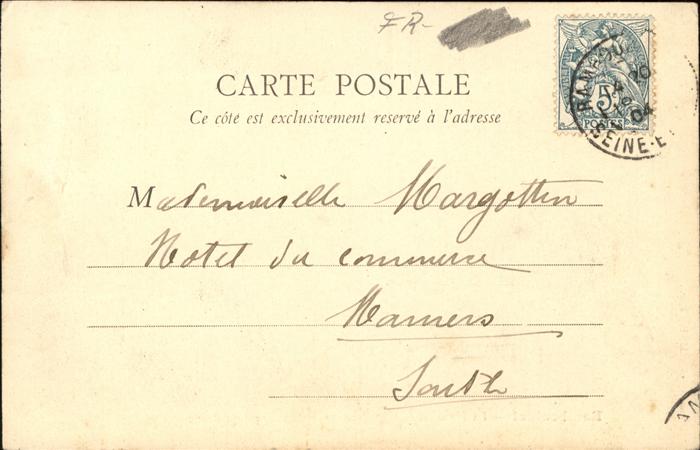 FR-
CARTE POSTALE
Ce côté est exclusivement reservé à l'adresse
5c
POSTES
RAMB
20
04
SEINE-E
Mademoiselle Margottin
Hotel du commerce
Mamers
Sarthe